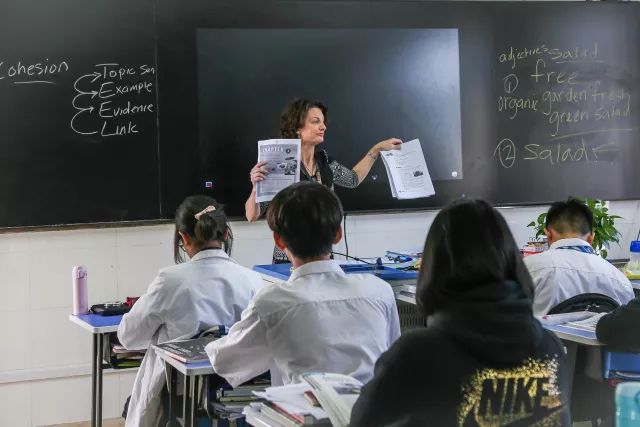 Cohesion
Topic Sen
Example
Evidence
Link
adjectives salad
① free
organic garden fresh
green salad
② salad
NIKE